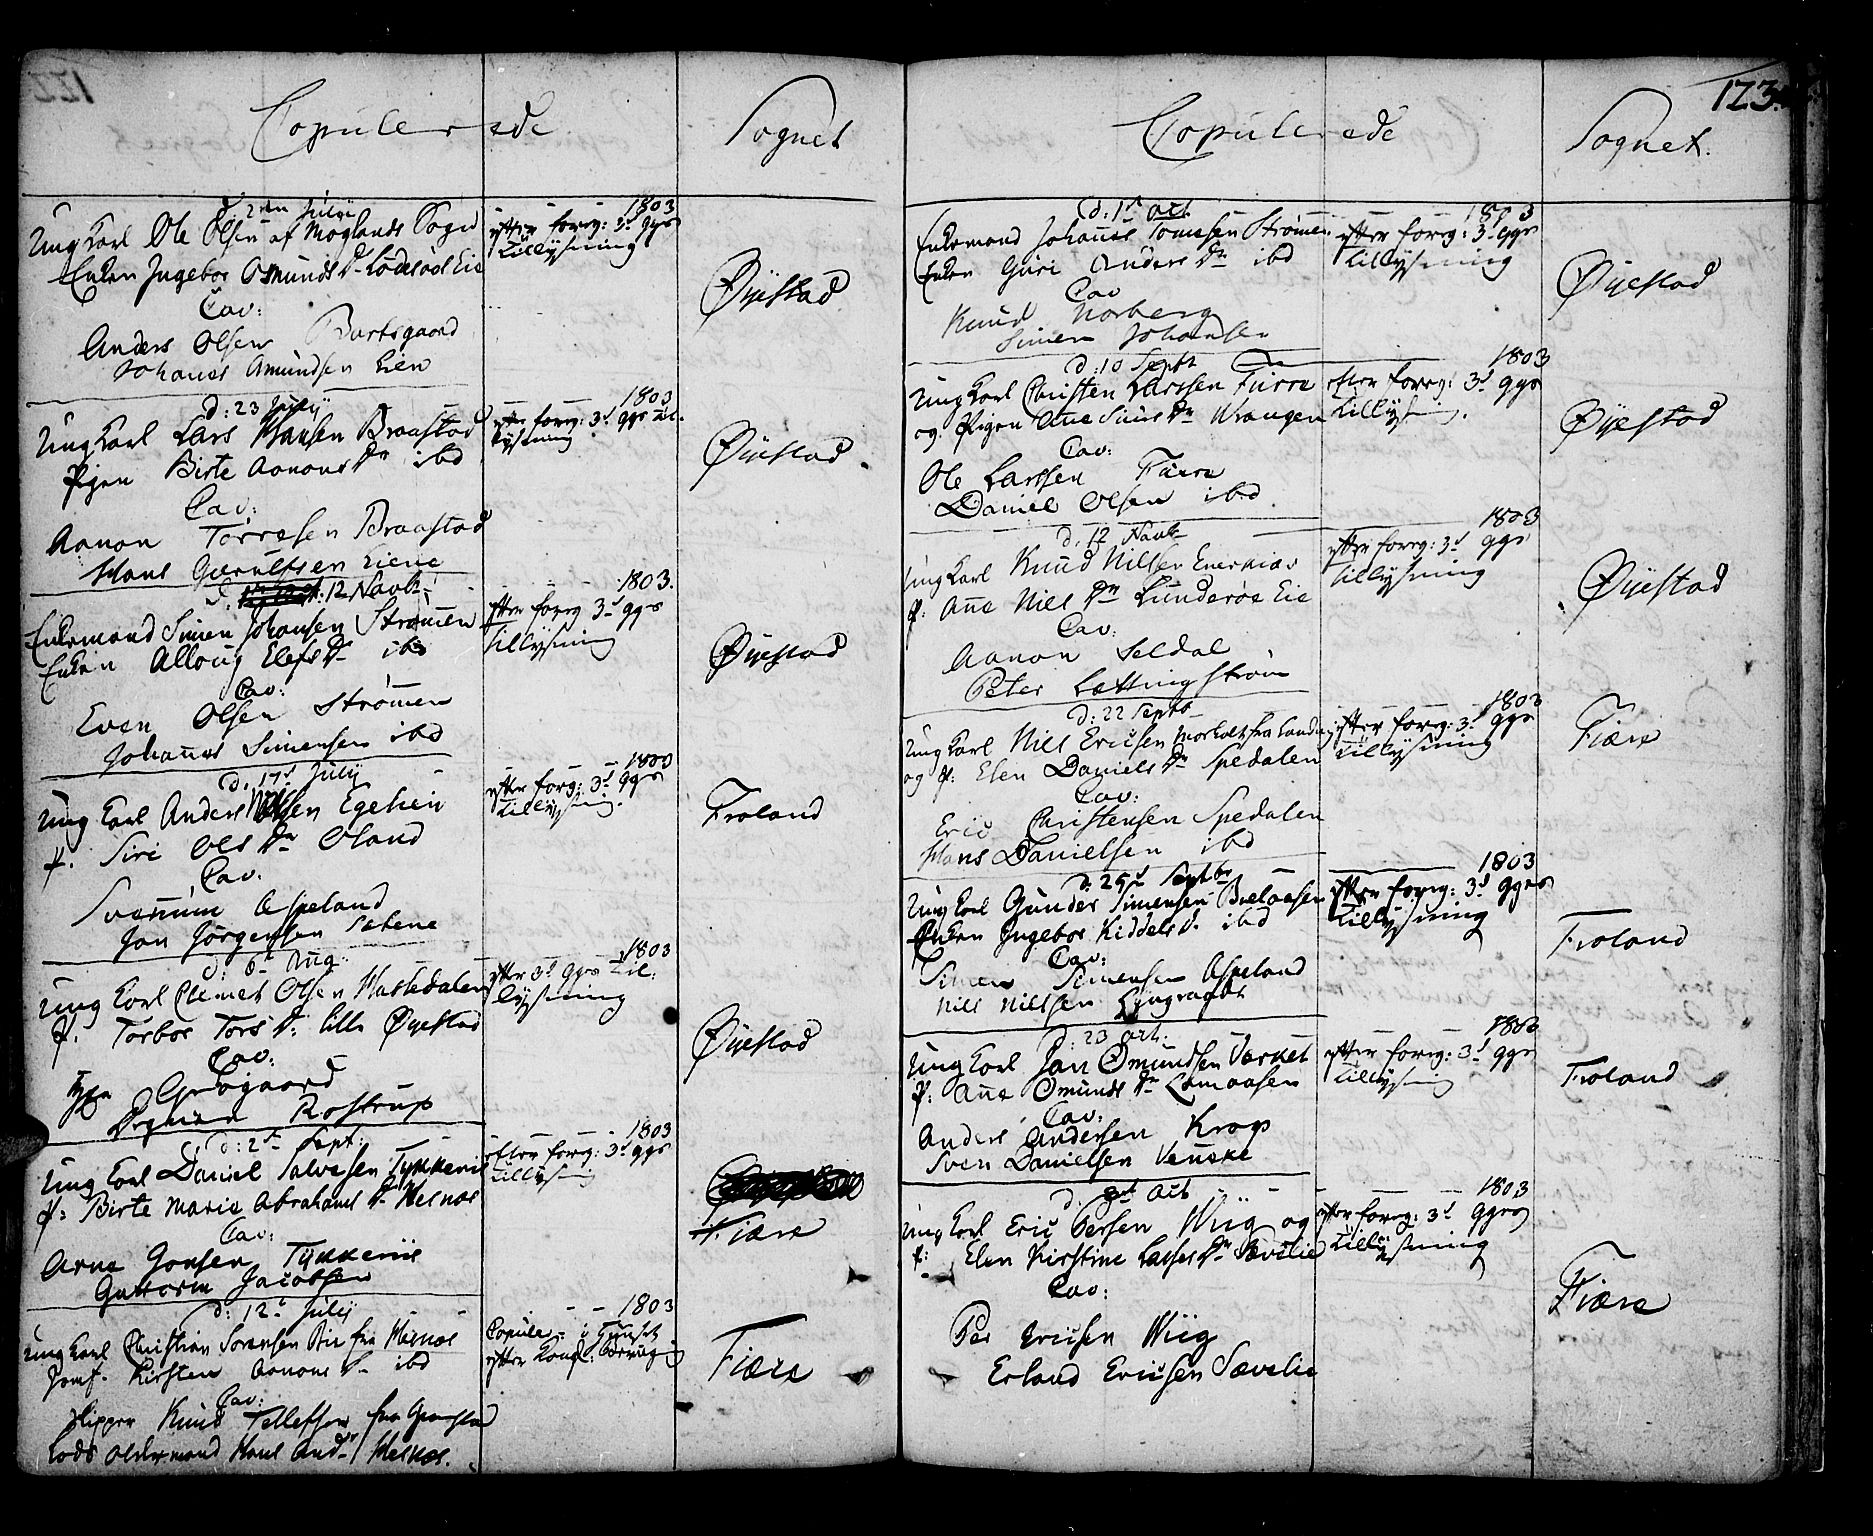 Copulerede
Sognet
d. 2den July
Ung Karl Ole Olsen af Moglands Sogn
Enken Ingebor Osmunds Dr Lødesøls Eie
Cav:
Anders Olsen Bartsgaard
Johanes Amundsen Eien
1803
efter forrg: 3de ggrs
Tillysning
Øyestad
d: 23 July
Ung Karl Lars Hansen Braastad
Pigen Birte Aanons Dr ibd
Cav:
Aanon Torresen Braastad
Hans Eiene
1803
efter forrg: 3de ggrs Til-
lysning
Øyestad
d. 12 Navbr
Enkemand Simen Johansen Strømen
Enken Alloug Elefs Dr ibd
Cav:
Even Olsen Strømen
Johanes Simensen ibd
1803.
efter forrg 3de ggrs
Tillysning
Øyestad
d. 17d July
Ung Karl Anders Egelien
P. Siri Ols Dr Oland
Cav.
Svennum Aspeland
Jon Jørgensen Sætene
1800
efter forrg: 3de ggrs
Tillysning.
Froland
d: 6te Aug:
Ung Karl Clemet Olsen Mastedalen
P. Torbor Tors Dr: Lille Øyestad
Cav:
Rostrup
1803
efter 3de ggrs Til:
lysning
Øyestad
d: 2de Sept:
Ung Karl Daniel Salvesen Tykkenis
P: Birte Marie Abrahams Dr Hesnæs
Cav:
Arne Gonsen Tykkeniis
Guttorm Jacobsen
1803
efter forrg: 3de ggrs
Tillysning
Fiære
d: 12te July
Ung Karl Christian Sørensen Bie fra Hesnæs
Jomf. Kirsten Aanons Dr ibd
Cav:
Skipper Knud Tellefsen fra
Lods Oldermand Hans And: Hesnæs.
1803
Copule- i Huuset
efter Kongl: Bevilg:
Fiære
123.
Copulerede
Sognet.
d: 1te Oct
Enkemand Johanes Tomesen Strømen
Enken Guri Anders Dr ibd
Cav
Knud Norberg
Simen Johansen
1803
efter forrg: 3de ggrs
Tillysning
Øyestad
d: 10 Sept
Ung Karl Christen Larssen Furre
og Pigen Ane Siurs Dr Wrangen
Cav:
Ole Larssen Furre
Daniel Olsen ibd
1803
efter forrg: 3de ggrs
Tillysning.
Øyestad
d: 12 Navbr
Ung Karl Knud Nilsen
P: Ane Niels Dr Lunderøe Eie
Cav:
Aanon Seldal
Peter Lættingstrøm
1803
efter forrg: 3de ggrs
Tillysning
Øyestad
d: 22 Septb
Ung Karl Niels Ericsen Morholt fra Landvig
og P: Elen Daniels Dr Spedalen
Cav:
Eric Christensen Spedalen
Hans Danielsen ibd
1803
efter forrg: 3de ggrs
Tillysning
Fiære
d: 25d Septbr
Ung Karl Gunder Simensen
Enken Ingebor Kiddels Dr. ibd
Cav:
Simen Simensen Aspeland
Niels Nielssen
1803
efter forrg: 3de ggrs
Tillysning
Froland
d: 23 Oct:
Ung Karl Jon Omundsen Værket
P: Ane Omunds Dr Lomaasen
Cav:
Anders Andersen Krog
Sven Danielsen Venske
efter forrg: 3de ggrs
Tillysning
Froland
d. Oct
Ung Karl Eric Persen Wiig og
P: Elen Kirstine Lasses Dr Sævelie
Cav:
Per Ericsen Wiig
Erland Ericsen Sævelie
1803
efter forrg: 3de ggrs
Tillysning
Fiære